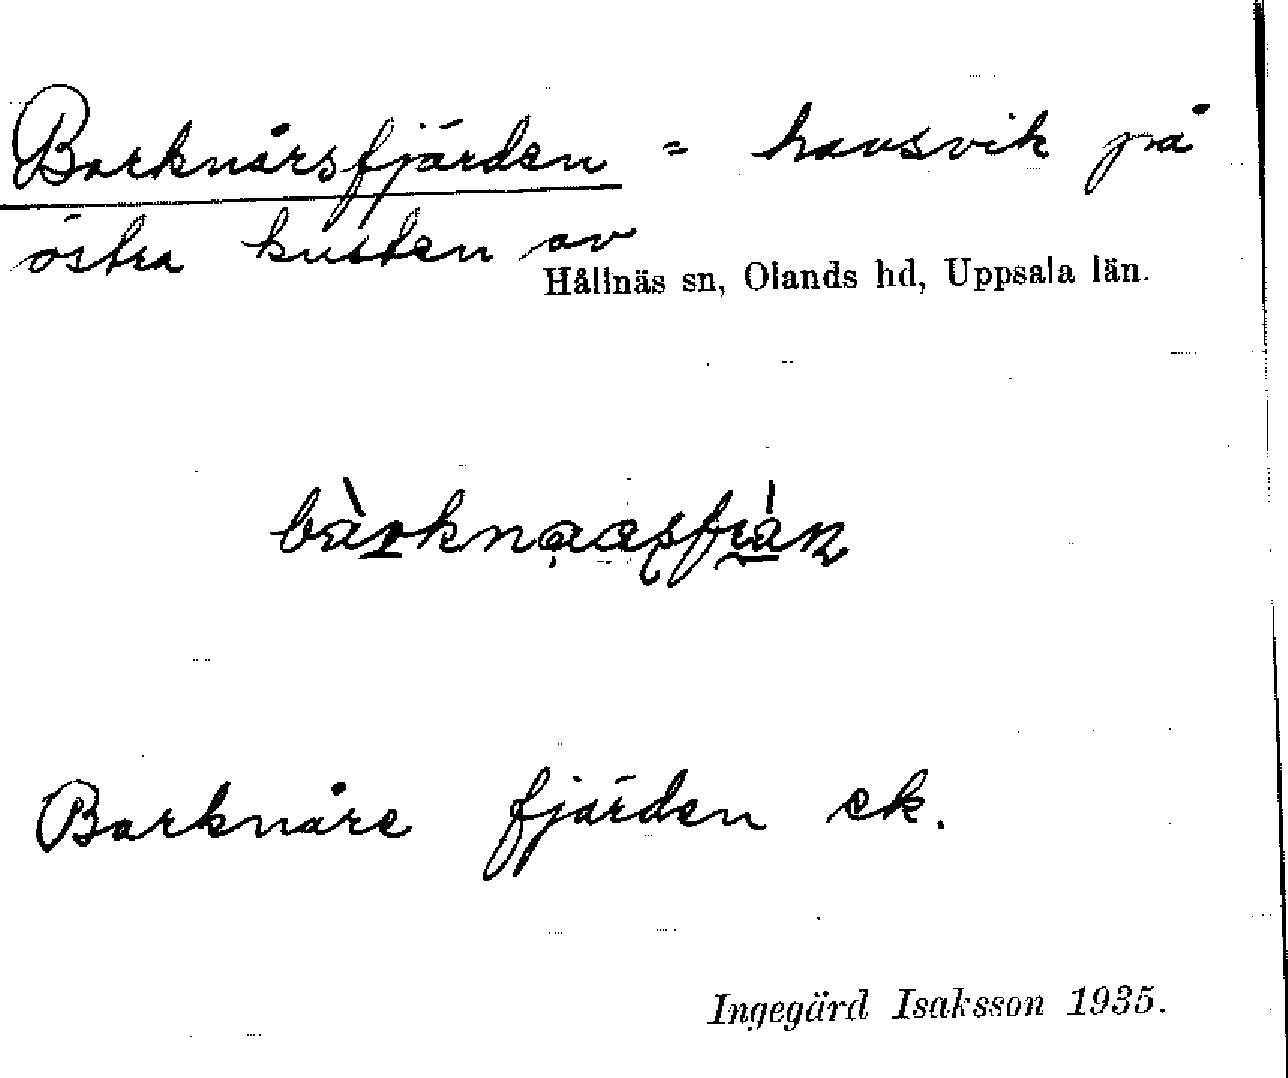 Barknårsfjärden = havsvik på
östra kusten av
Hållnäs sn, Olands hd, Uppsala län.
Barknåre fjärden ek.
Ingegärd Isaksson 1935.